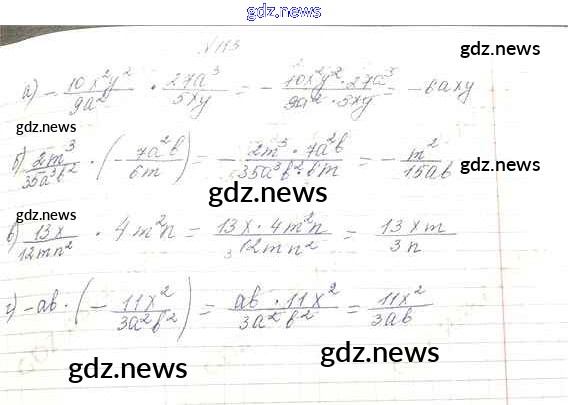 gdz.news
N 113
а) - 10x²y²/9a² · 27a³/5xy = - 10x²y² · 27a³/9a² · 5xy = - 6axy
gdz.news
gdz.news
б) 2m³/35a³b² · (- 7a²b/6m) = - 2m³ · 7a²b/35a³b² · 6m = - m²/15ab
gdz.news
gdz.news
в) 13x/12mn² · 4m²n = 13x · 4m²n/3 12mn² = 13xm/3n
г) - ab · (- 11x²/3a²b²) = ab · 11x²/3a²b² = 11x²/3ab
gdz.news
gdz.news